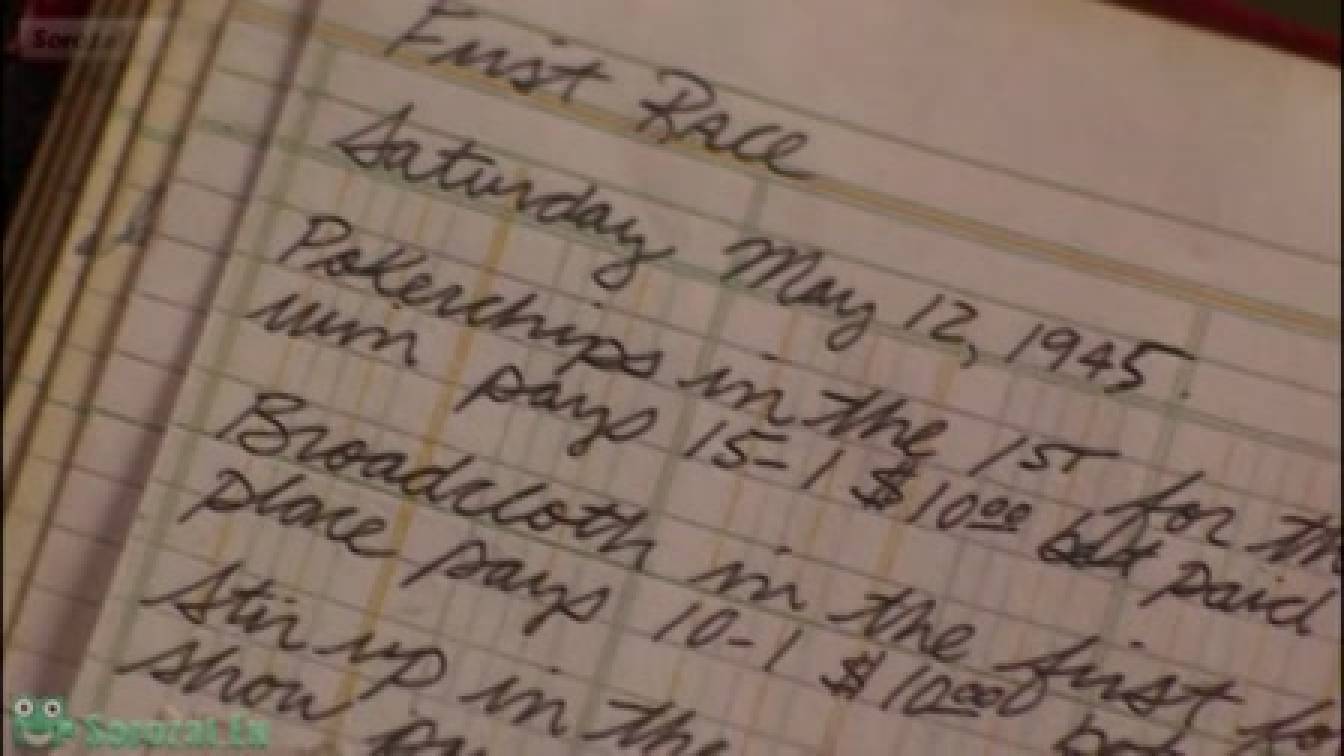 First Race
Saturday May 12, 1945.
Pokerchips in the 1ST for th
win pays 15-1 $10.00 bet paid
Broadcloth in the first fo
place pays 10-1 $10.00 be
Stir up in the
show pa